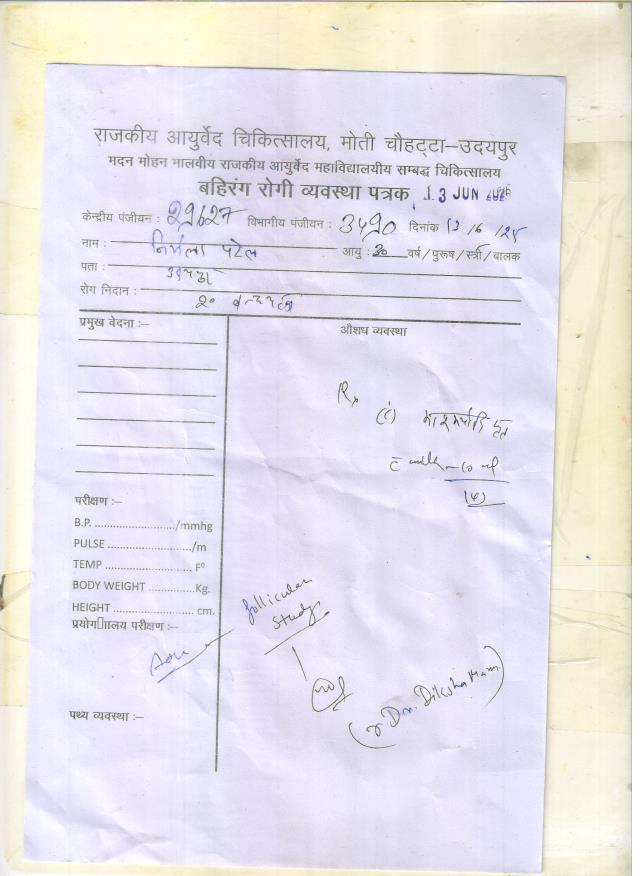 राजकीय आयुर्वेद चिकित्सालय, मोती चौहट्टा–उदयपुर
मदन मोहन मालवीय राजकीय आयुर्वेद महाविद्यालयीय सम्बद्ध चिकित्सालय
बहिरंग रोगी व्यवस्था पत्रक 13 JUN
केन्द्रीय पंजीयन : 29627 विभागीय पंजीयन : 3490 दिनांक 13/6/25
नाम : निर्मला पटेल आयु : 30 वर्ष/पुरूष/स्त्री/बालक
पता :
रोग निदान :
प्रमुख वेदना :–
औशध व्यवस्था
Rx
c milk – 10 ml
परीक्षण :–
B.P. ........................./mmhg
PULSE ...................../m
TEMP ..................... F⁰
BODY WEIGHT ............Kg.
HEIGHT ..................... cm.
प्रयोगाालय परीक्षण :–
Adv
follicular
study
(Dr. Diksha Mam)
पथ्य व्यवस्था :–